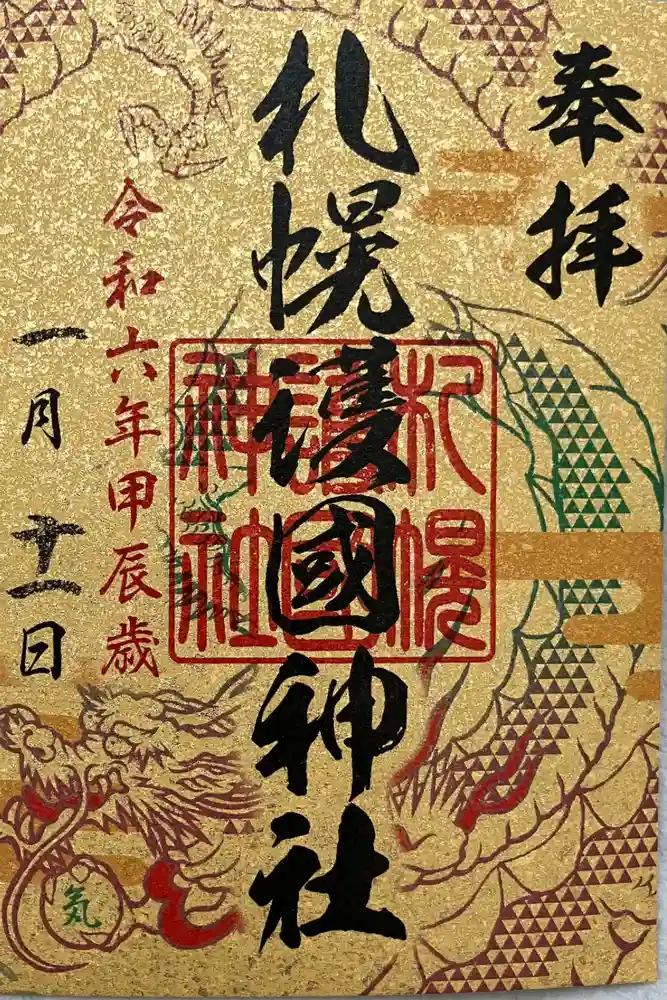 奉拝
札幌護國神社
札幌
護國
神社
令和六年甲辰歳
一月十一日
気